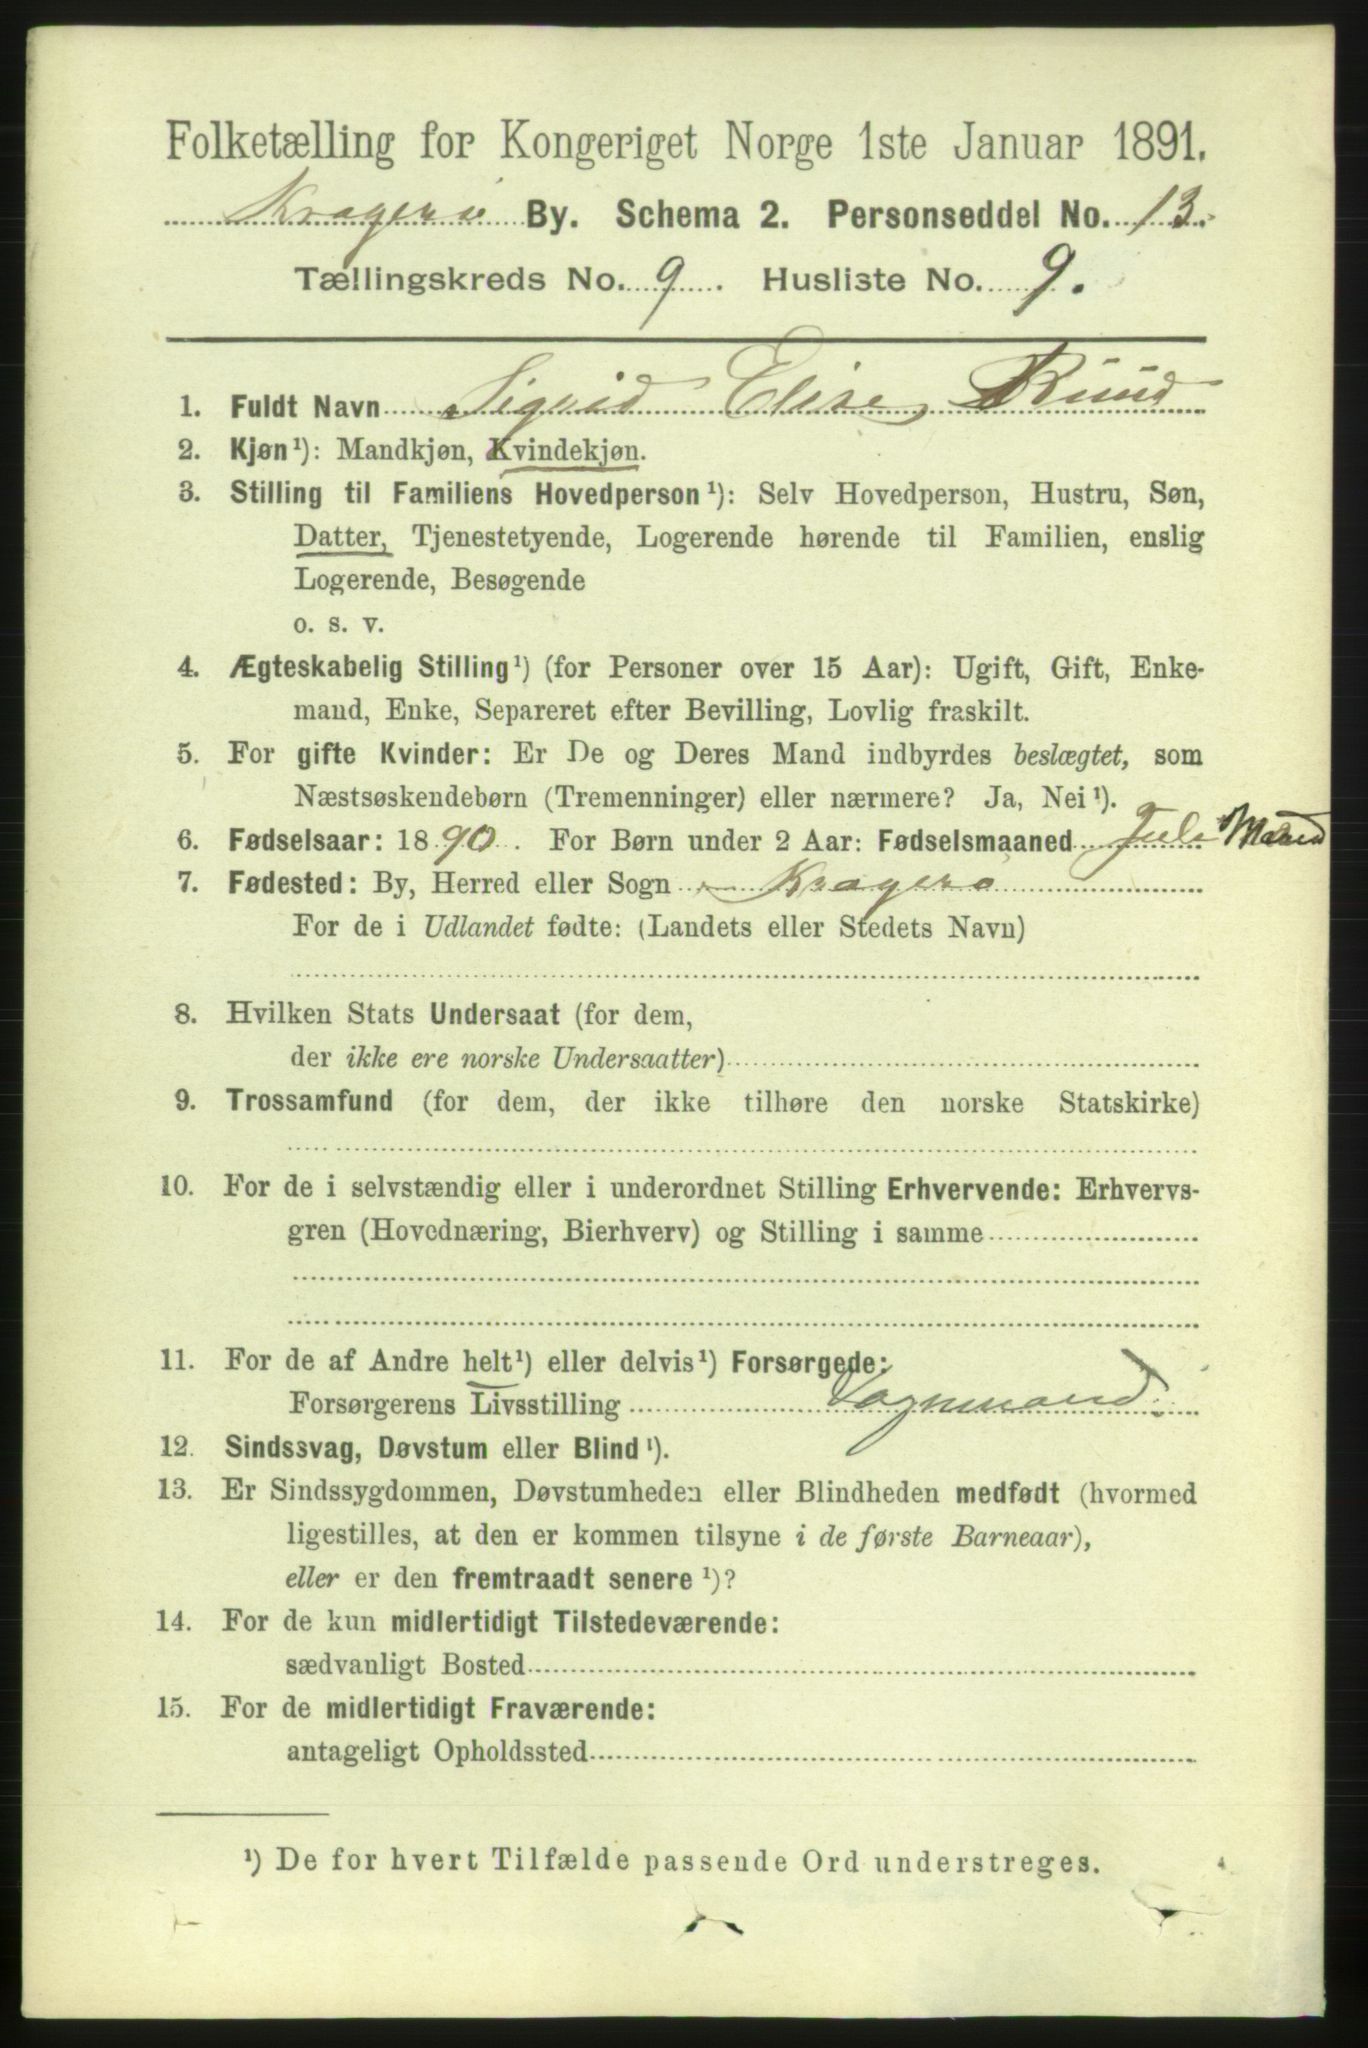 Folketælling for Kongeriget Norge 1ste Januar 1891.
Kragerø By. Schema 2. Personseddel No. 13.
Tællingskreds No. 9. Husliste No. 9.
1. Fuldt Navn Sigrid Elise Ruud
2. Kjøn¹): Mandkjøn, Kvindekjøn.
3. Stilling til Familiens Hovedperson¹): Selv Hovedperson, Hustru, Søn,
Datter, Tjenestetyende, Logerende hørende til Familien, enslig
Logerende, Besøgende
o. s. v.
4. Ægteskabelig Stilling¹) (for Personer over 15 Aar): Ugift, Gift, Enke-
mand, Enke, Separeret efter Bevilling, Lovlig fraskilt.
5. For gifte Kvinder: Er De og Deres Mand indbyrdes beslægtet, som
Næstsøskendebørn (Tremenninger) eller nærmere? Ja, Nei¹).
6. Fødselsaar: 1890. For Børn under 2 Aar: Fødselsmaaned Juli Maaned
7. Fødested: By, Herred eller Sogn Kragerø
For de i Udlandet fødte: (Landets eller Stedets Navn)
8. Hvilken Stats Undersaat (for dem,
der ikke ere norske Undersaatter)
9. Trossamfund (for dem, der ikke tilhøre den norske Statskirke)
10. For de i selvstændig eller i underordnet Stilling Erhvervende: Erhvervs-
gren (Hovednæring, Bierhverv) og Stilling i samme
11. For de af Andre helt¹) eller delvis¹) Forsørgede:
Forsørgerens Livsstilling Vognmand.
12. Sindssvag, Døvstum eller Blind¹).
13. Er Sindssygdommen, Døvstumheden eller Blindheden medfødt (hvormed
ligestilles, at den er kommen tilsyne i de første Barneaar),
eller er den fremtraadt senere¹)?
14. For de kun midlertidigt Tilstedeværende:
sædvanligt Bosted
15. For de midlertidigt Fraværende:
antageligt Opholdssted
¹) De for hvert Tilfælde passende Ord understreges.